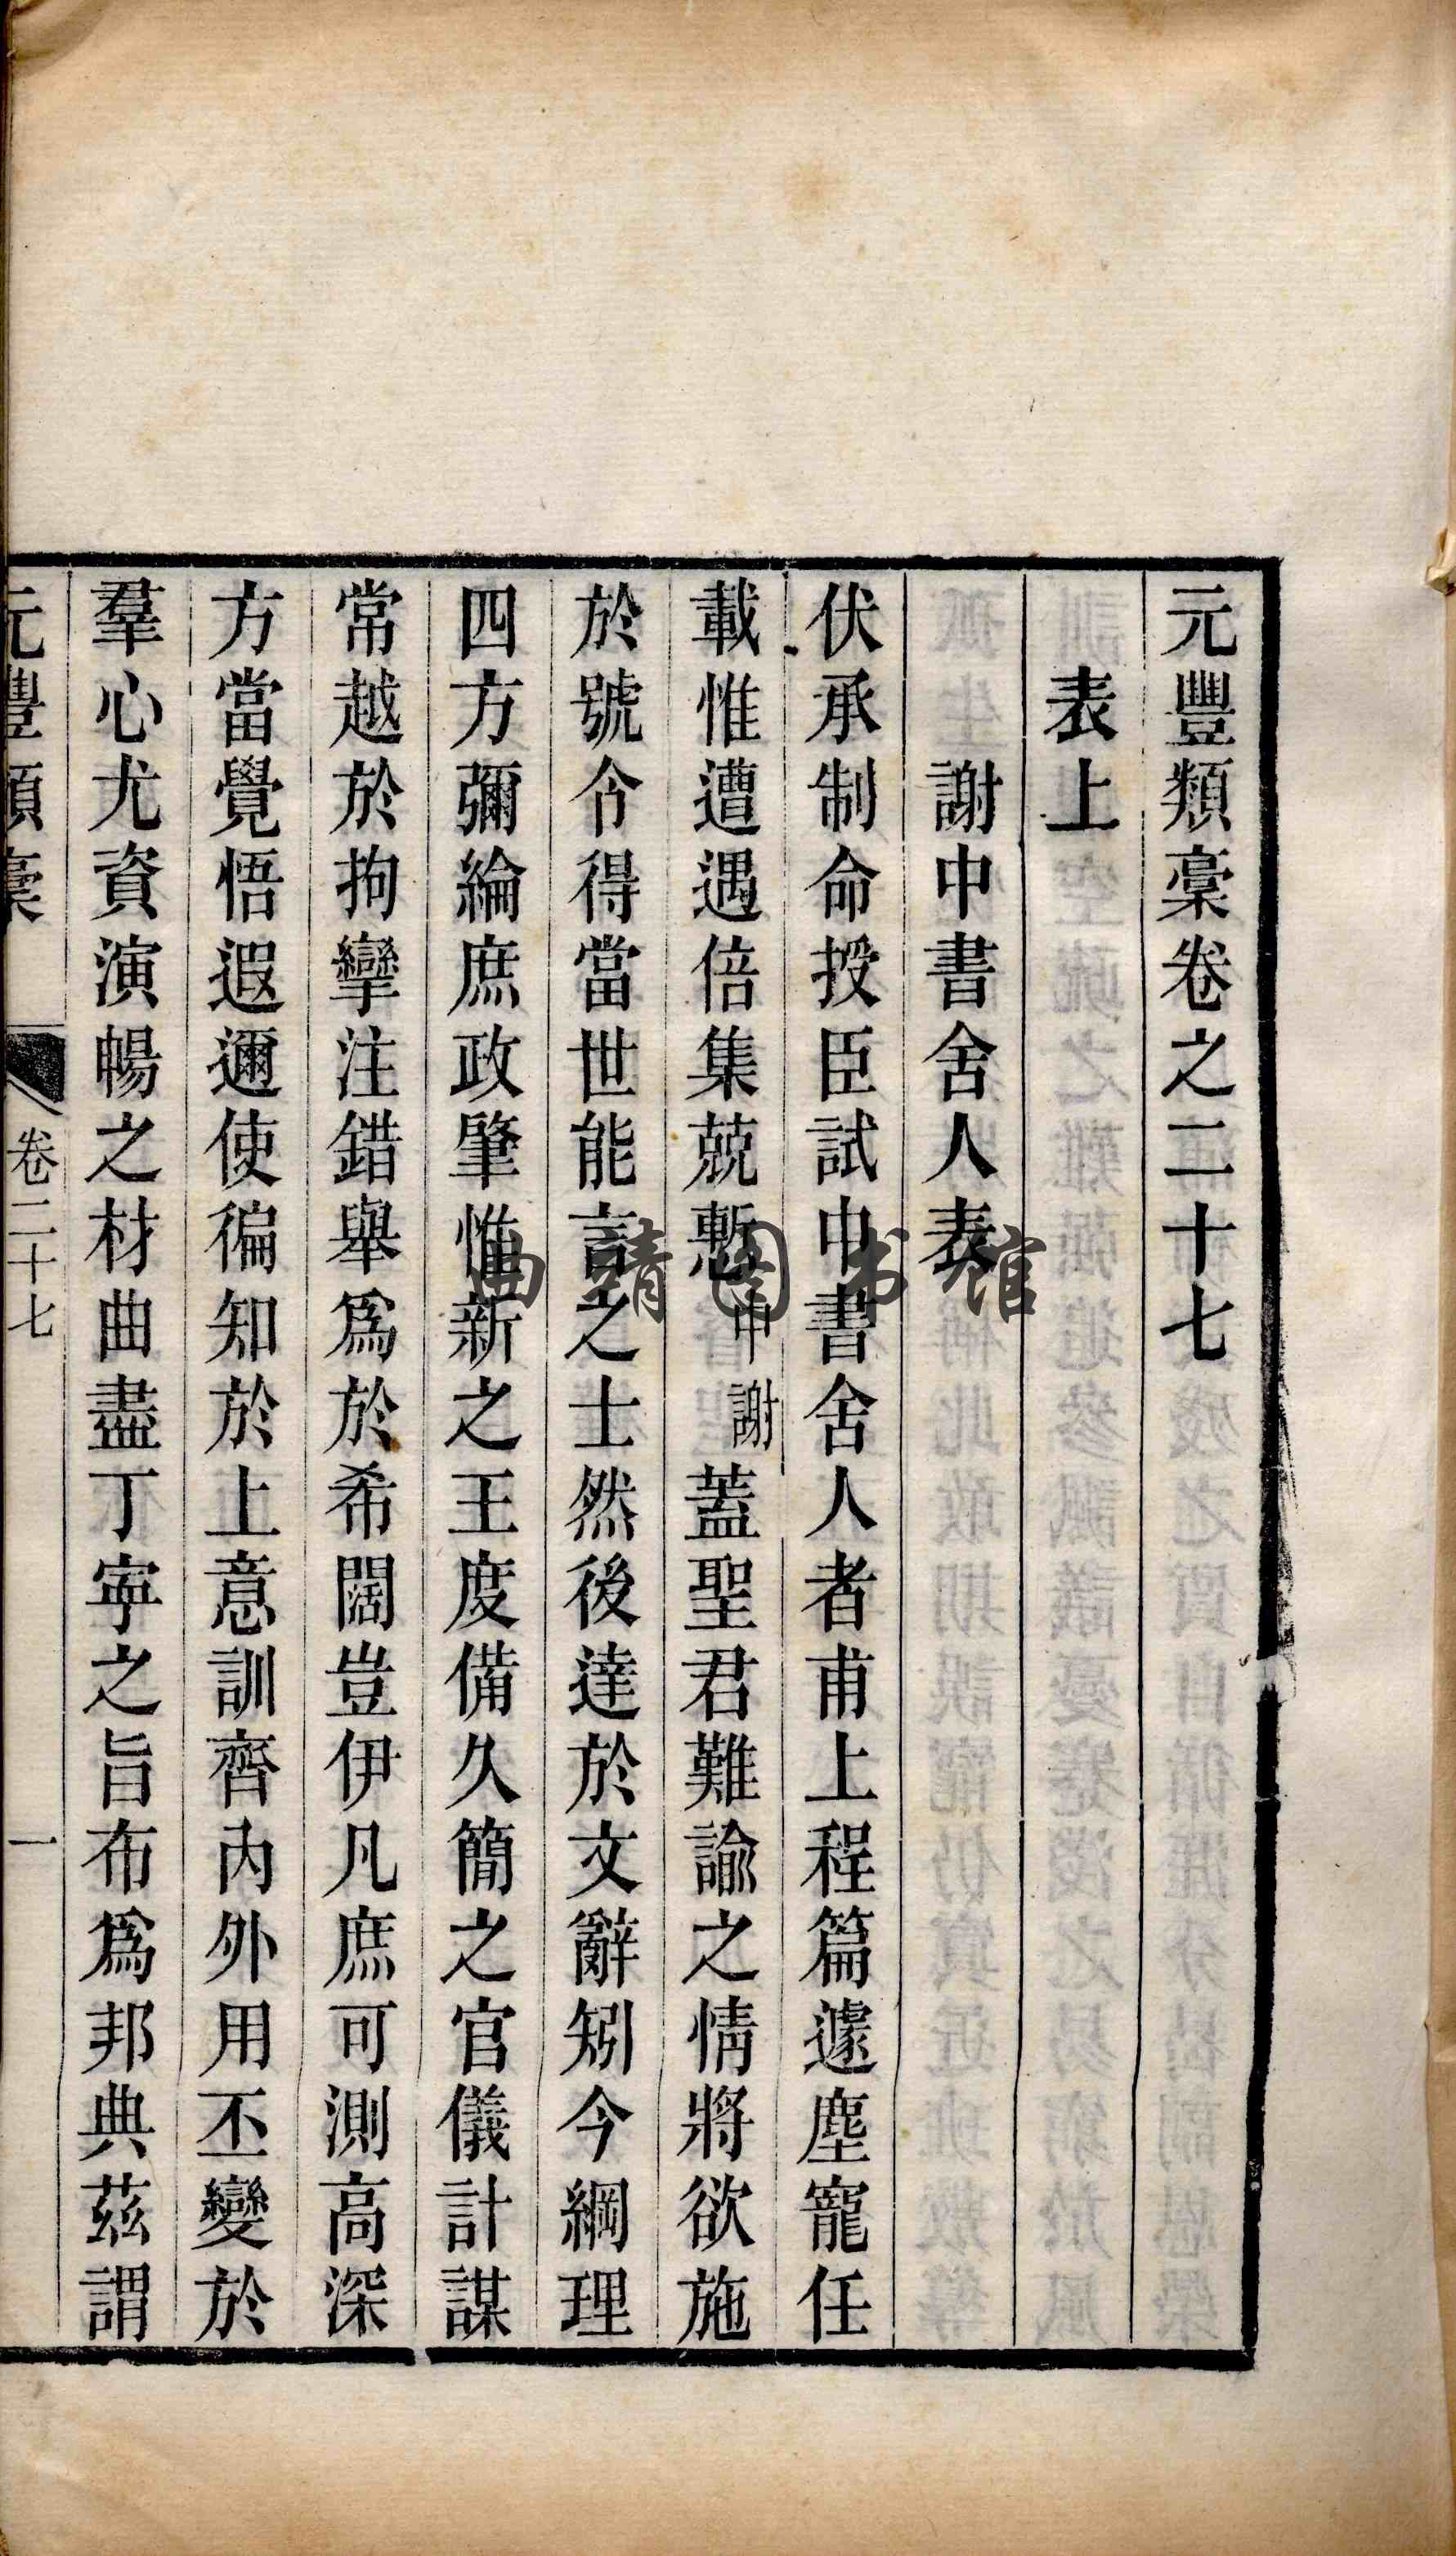 元豐類稾卷之二十七
表上
謝中書舍人表
伏承制命授臣試中書舍人者甫上程篇遽塵寵任
載惟遭遇倍集兢慙中謝蓋聖君難諭之情將欲施
於號令得當世能言之士然後達於文辭矧今綱理
四方彌綸庶政肇惟新之王度備久簡之官儀計謀
常越於拘攣注錯舉爲於希闊豈伊凡庶可測高深
方當覺悟遐邇使徧知於上意訓齊內外用丕變於
羣心尤資演暢之材曲盡丁寧之旨布爲邦典茲謂
元豐類稾
卷二十七
一
曲靖图书馆